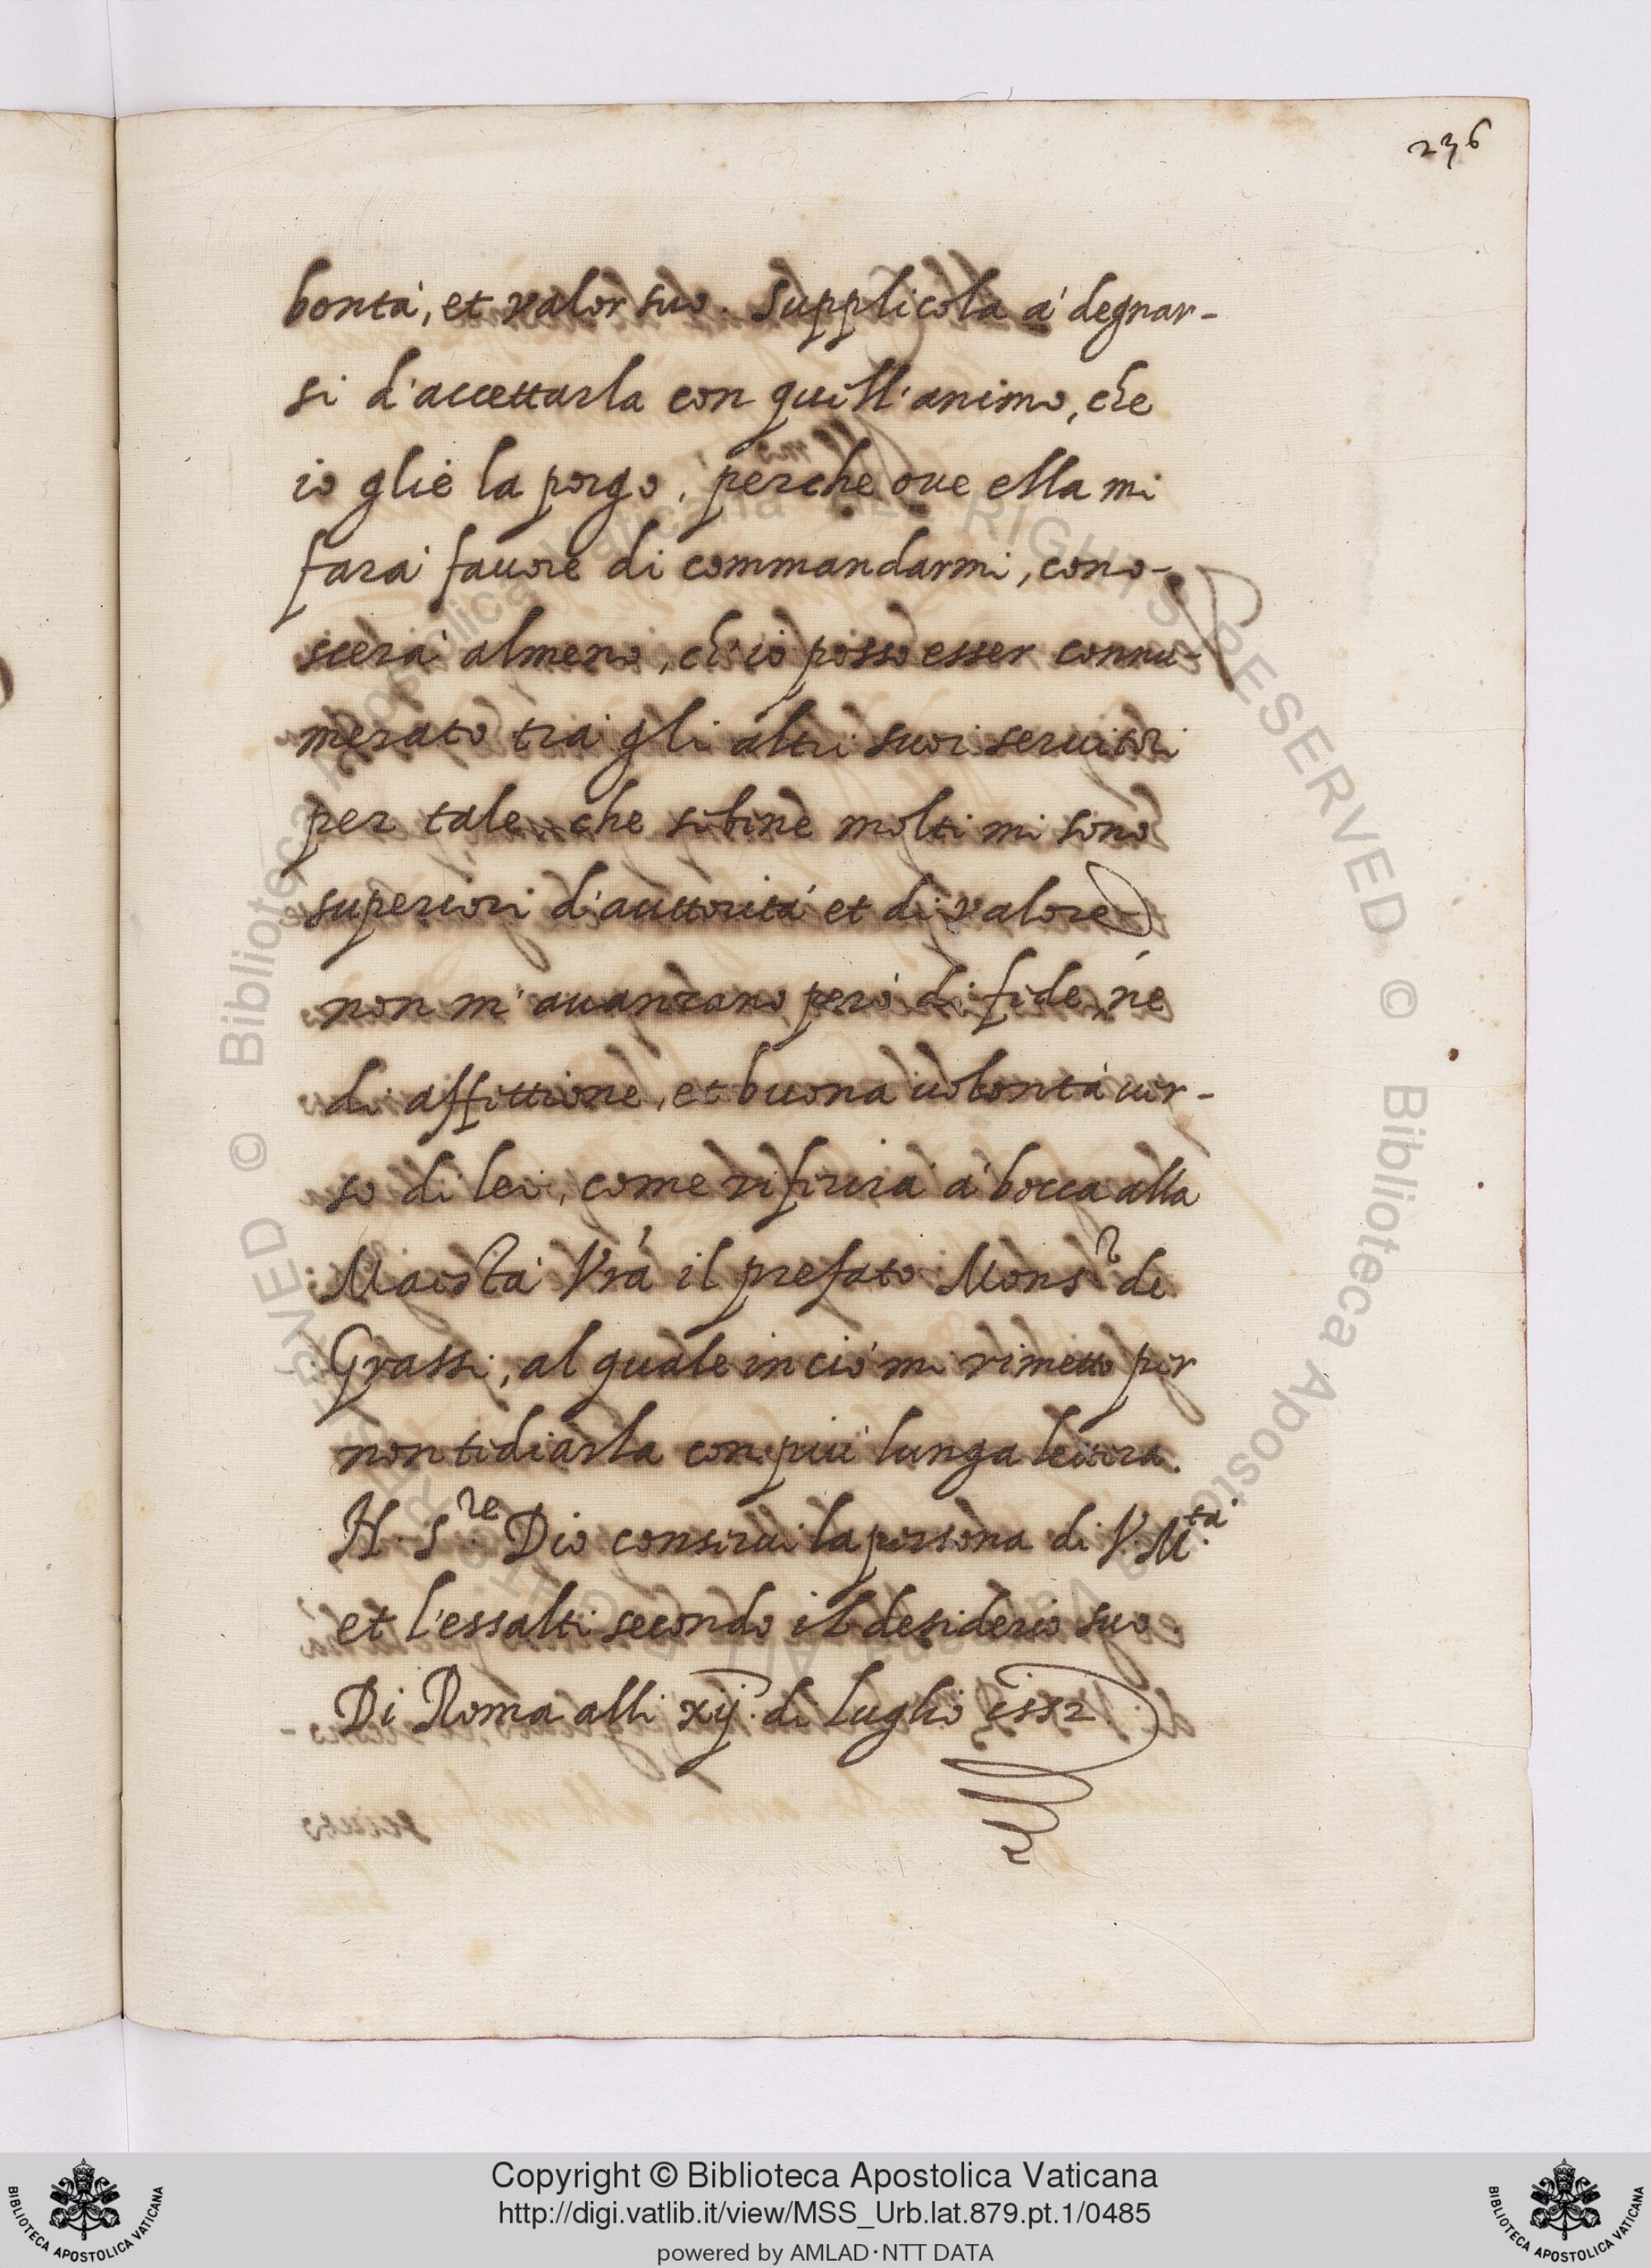 236
bontà, et valor suo. Supplicola à degnar-
si d'accettarla con quell'animo, che
io gliè la porgo, perche oue ella mi
farà fauore di commandarmi, cono-
scerà almeno, ch'io posso esser connu-
merato trà gli altri suoi seruitori
per tale, che sebene molti mi sono
superiori d'auttorità et di valore
non m'auanzano però di fede, nè
di affettione, et buona uolontà uer-
so di lei, come riferirà à bocca alla
Maiestà Vrà il prefato Mons.r de
Grassi, al quale in ciò mi rimetto per
non tediarla con più lunga lettera.
N. S.re Dio conserui la persona di V. M.tà
et l'essalti secondo il desiderio suo.
Di Roma alli xij. di Luglio 1552.
© Biblioteca Apostolica Vaticana ALL RIGHTS RESERVED © Biblioteca Apostolica Vaticana ALL RIGHTS RESERVED
Copyright © Biblioteca Apostolica Vaticana
http://digi.vatlib.it/view/MSS_Urb.lat.879.pt.1/0485
powered by AMLAD·NTT DATA
BIBLIOTECA APOSTOLICA VATICANA
BIBLIOTECA APOSTOLICA VATICANA